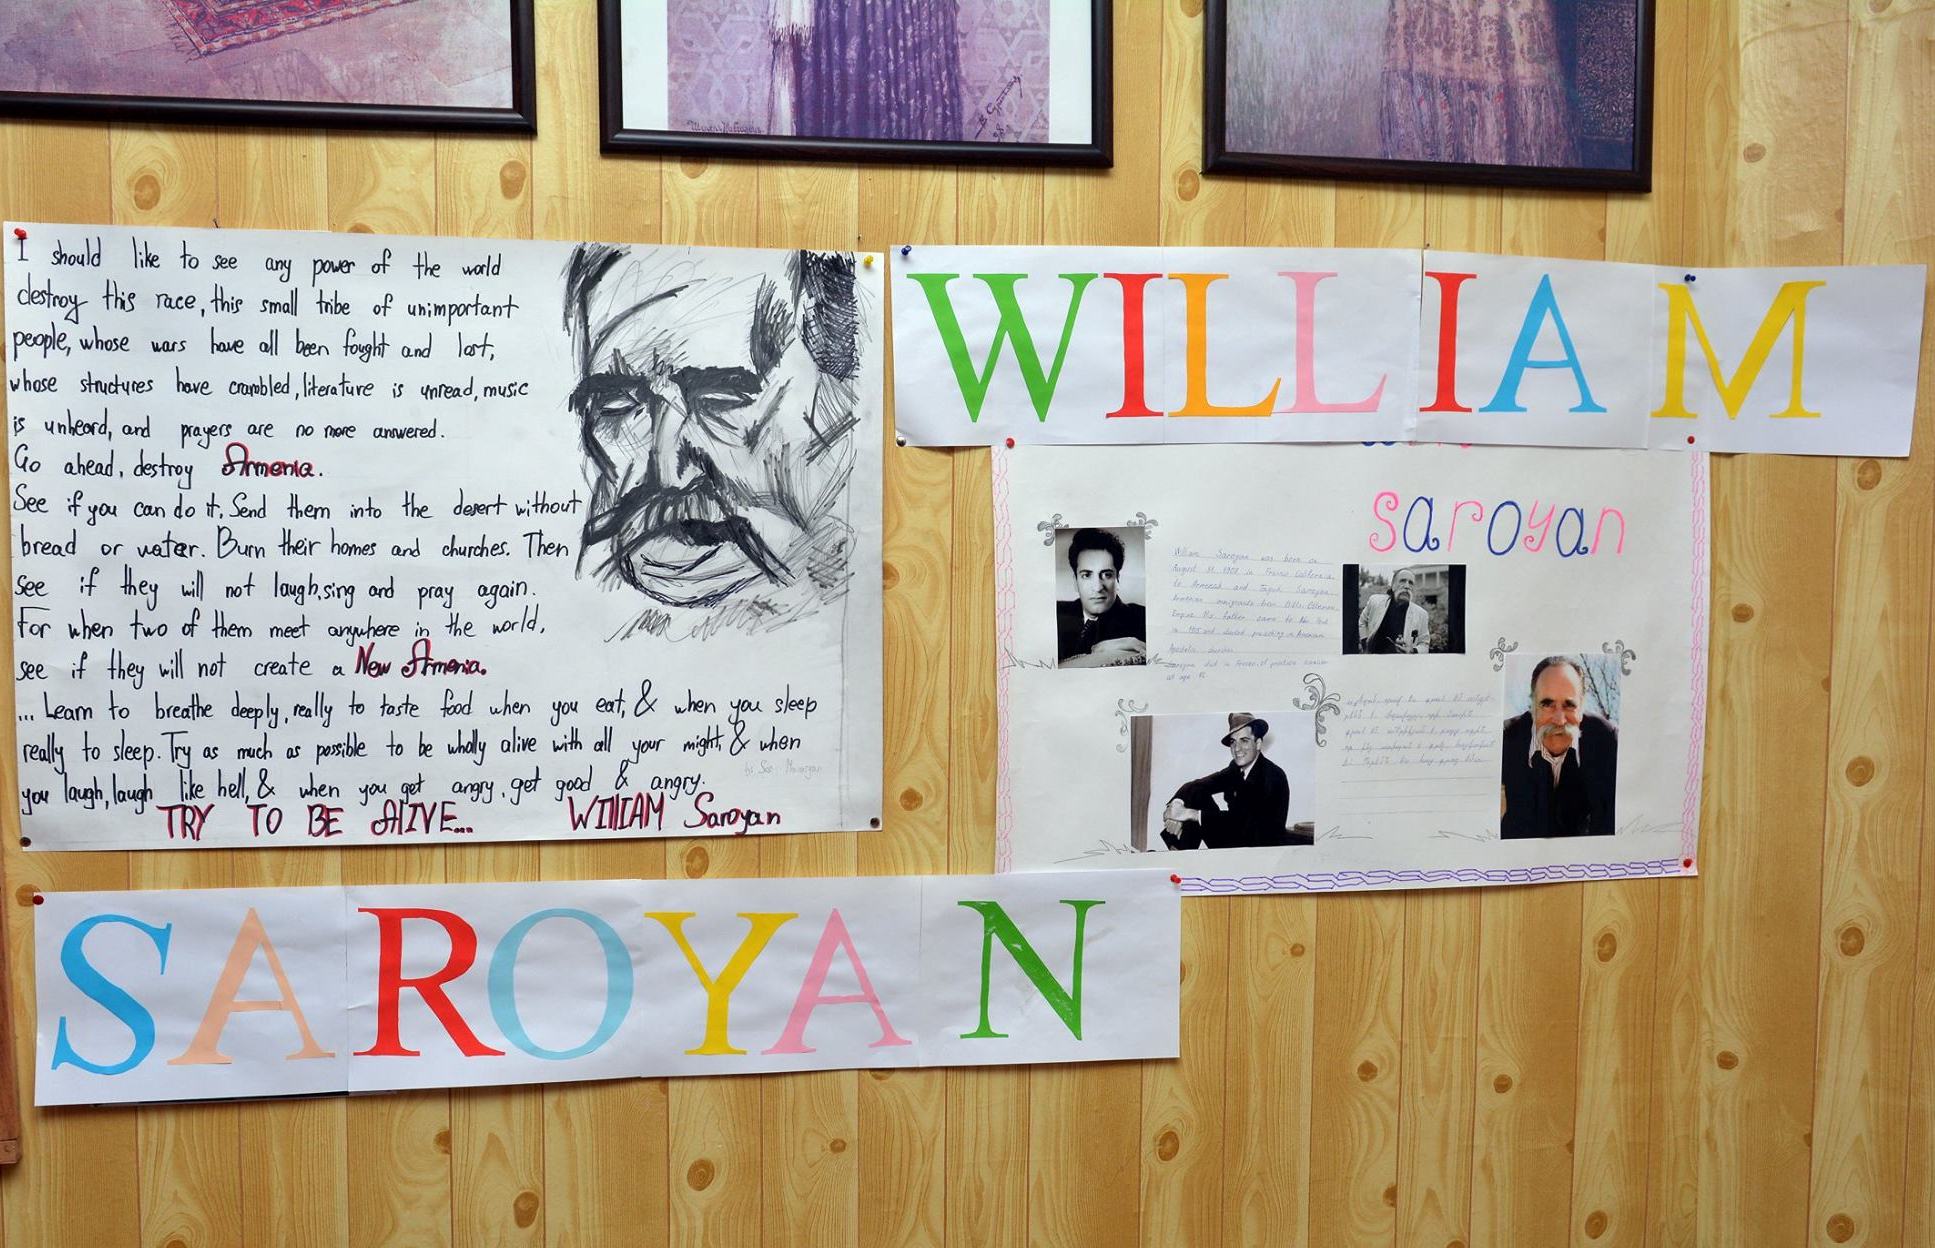 I should like to see any power of the world
destroy this race, this small tribe of unimportant
people, whose wars have all been fought and lost,
whose structures have crambled, literature is unread, music
is unheard, and prayers are no more answered.
Go ahead, destroy Armenia.
See if you can do it. Send them into the desert without
bread or water. Burn their homes and churches. Then
see if they will not laugh, sing and pray again.
For when two of them meet anywhere in the world,
see if they will not create a New Armenia.
... Learn to breathe deeply, really to taste food when you eat, & when you sleep
really to sleep. Try as much as possible to be wholly alive with all your might, & when
you laugh, laugh like hell, & when you get angry, get good & angry.
TRY TO BE ALIVE... WIllIAM Saroyan
WILLIAM
saroyan
William Saroyan was born on
August 31, 1908 in Fresno California
to Armenak and Saroyan,
Armenian immigrants from Bitlis, Ottoman
Empire. His father came to New York
in 1905 and started preaching in Armenian
Apostolic churches.
Saroyan died in Fresno, of prostate cancer
at age
SAROYAN